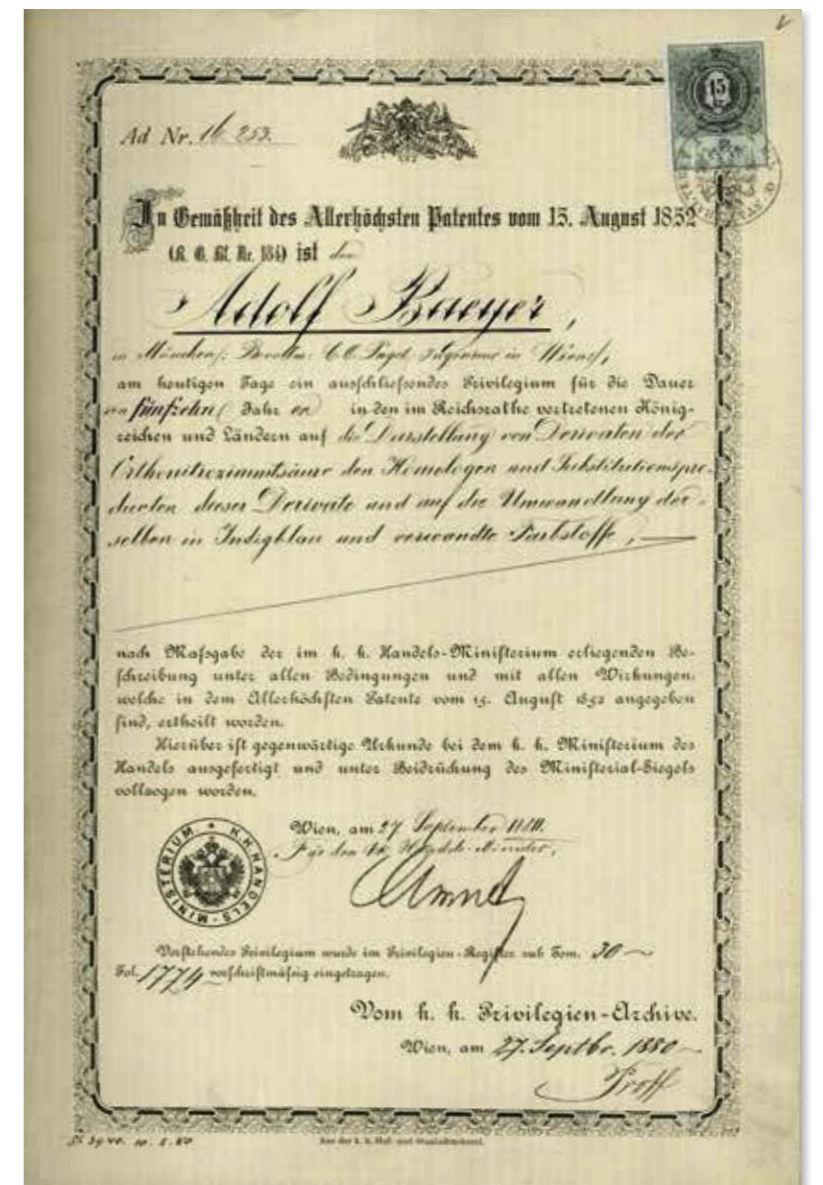 Ad Nr. 16 253.
15
In Gemäßheit des Allerhöchsten Patentes vom 15. August 1852
(R. G. Bl. Nr. 184) ist dem
Adolf Baeyer,
in München /: Bevollm: C. O. Paget Ingenieur in Wien :/,
am heutigen Tage ein ausschließendes Privilegium für die Dauer
von fünfzehn Jahr en in den im Reichsrathe vertretenen König-
reichen und Ländern auf die Darstellung von Derivaten der
Orthonitrozimmtsäure den Homologen und Substitutionspro-
ducten dieser Derivate und auf die Umwandlung der-
selben in Indigblau und verwandte Farbstoffe,
nach Maßgabe der im k. k. Handels-Ministerium erliegenden Be-
schreibung unter allen Bedingungen und mit allen Wirkungen,
welche in dem Allerhöchsten Patente vom 15. August 1852 angegeben
sind, ertheilt worden.
Hierüber ist gegenwärtige Urkunde bei dem k. k. Ministerium des
Handels ausgefertigt und unter Beidrückung des Ministerial-Siegels
vollzogen worden.
Wien, am 27 September 1880.
Für den kk. Handels-Minister,
K.K. HANDELS-MINISTERIUM
Vorstehendes Privilegium wurde im Privilegien-Register sub Tom. 30
Fol. 1774 vorschriftmäßig eingetragen.
Vom k. k. Privilegien-Archive.
Wien, am 27. Septbr. 1880
Aus der k. k. Hof- und Staatsdruckerei.